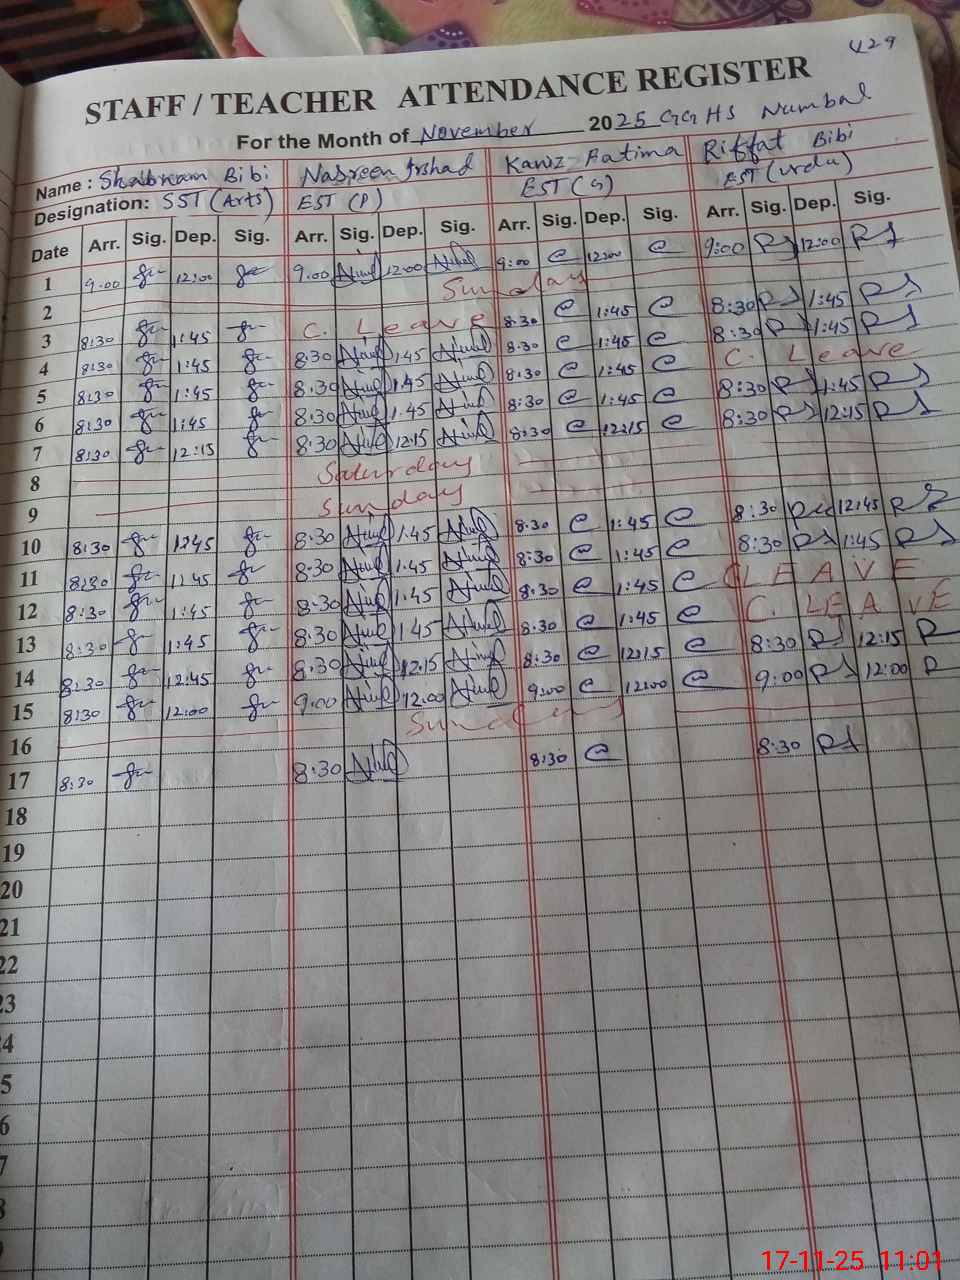 429
STAFF / TEACHER ATTENDANCE REGISTER
For the Month of November 2025 GGHS Numbal
Name : Shabnam Bibi Nasreen Arshad Kaniz Fatima Riffat Bibi
Designation: SST (Arts) EST (P) EST (G) EST (Urdu)
Date Arr. Sig. Dep. Sig. Arr. Sig. Dep. Sig. Arr. Sig. Dep. Sig. Arr. Sig. Dep. Sig.
1 9:00 12:00 9:00 12:00 9:00 12:00 9:00 12:00
2 Sunday
3 8:30 1:45 C. Leave 8:30 1:45 8:30 1:45
4 8:30 1:45 8:30 1:45 8:30 1:45 8:30 1:45
5 8:30 1:45 8:30 1:45 8:30 1:45 C. Leave
6 8:30 1:45 8:30 1:45 8:30 1:45 8:30 1:45
7 8:30 12:15 8:30 12:15 8:30 12:15 8:30 12:15
8 Saturday
9 Sunday
10 8:30 1:45 8:30 1:45 8:30 1:45 8:30 12:45
11 8:30 1:45 8:30 1:45 8:30 1:45 8:30 1:45
12 8:30 1:45 8:30 1:45 8:30 1:45 LEAVE
13 8:30 1:45 8:30 1:45 8:30 1:45 C. LEAVE
14 8:30 12:45 8:30 12:15 8:30 12:15 8:30 12:15
15 8:30 12:00 9:00 12:00 9:00 12:00 9:00 12:00
16 Sunday
17 8:30 8:30 8:30 8:30
18
19
20
21
22
23
4
5
6
7
8
17-11-25 11:01